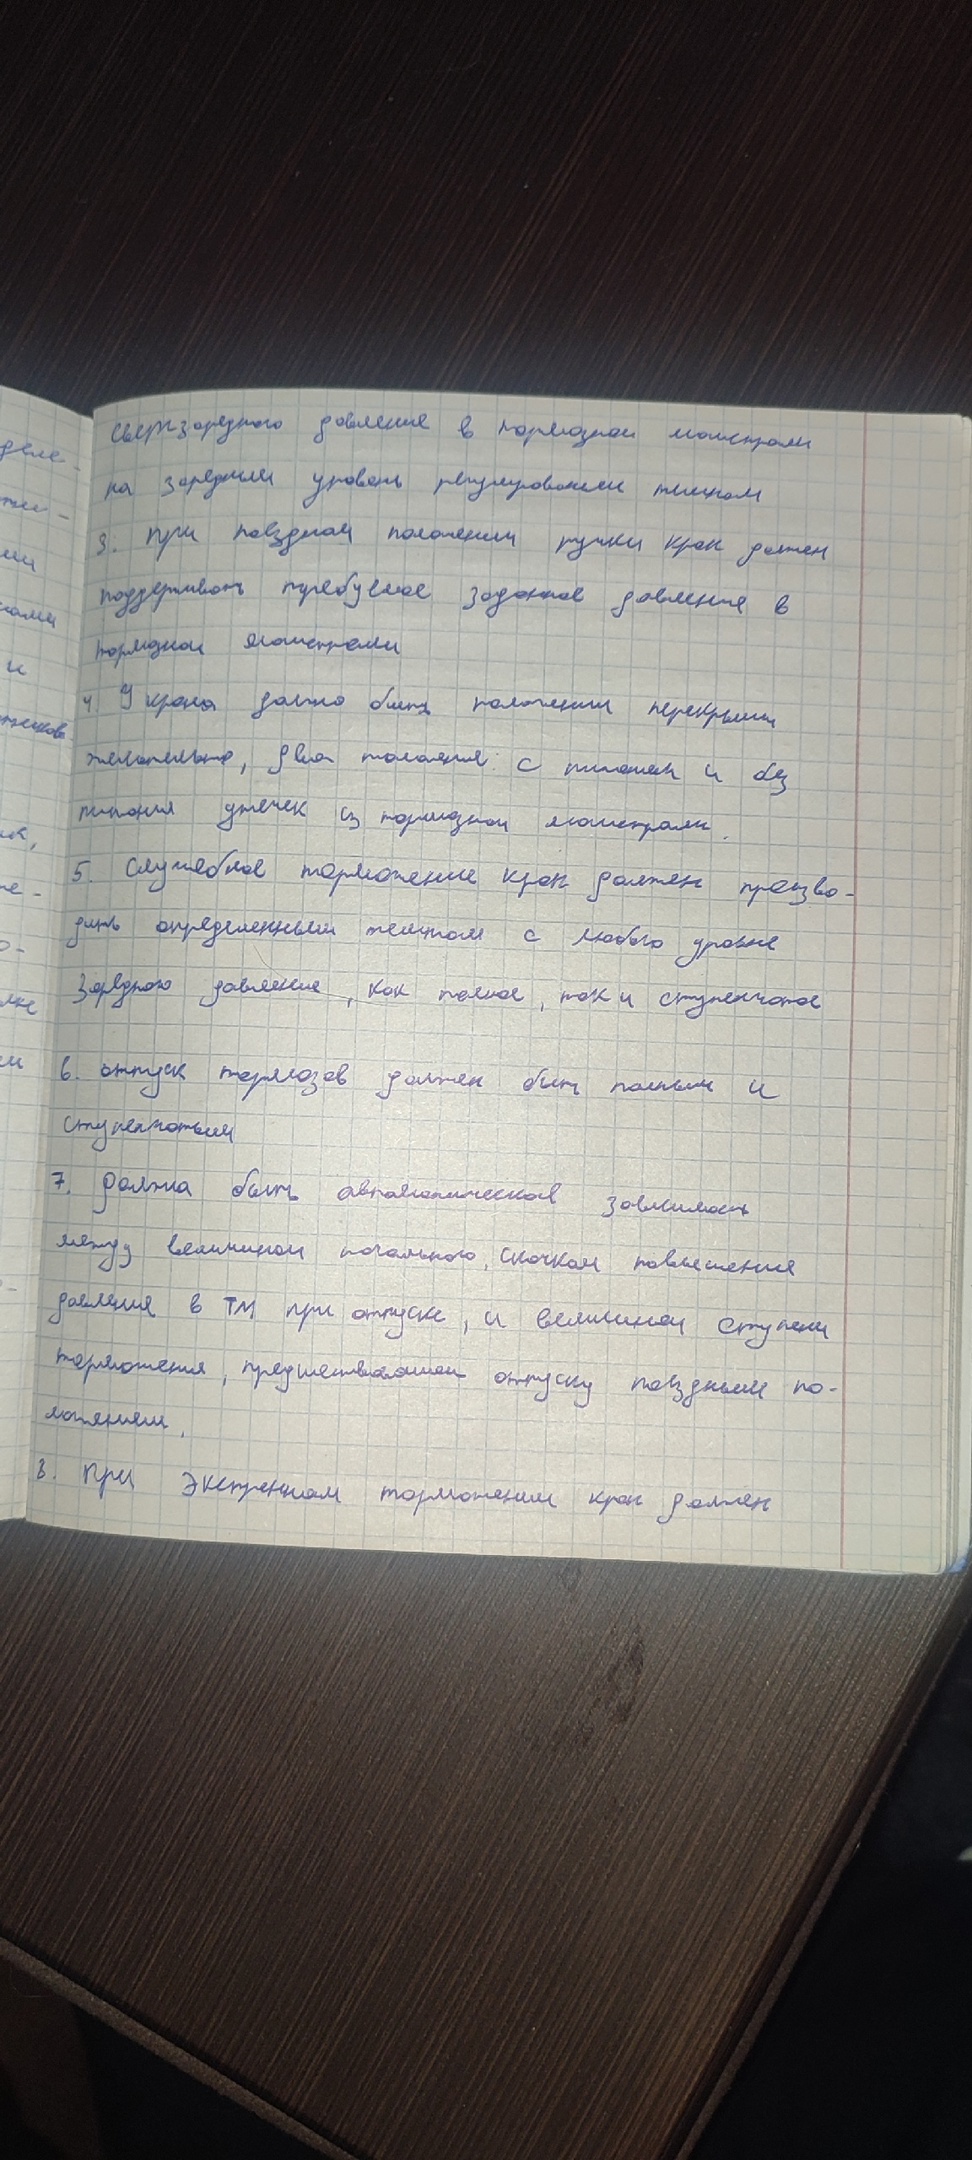 сверхзарядного давления в тормозной магистрали
на зарядный уровень регулированным темпом
3. При поездном положении ручки кран должен
поддерживать требуемое заданное давление в
тормозной магистрали
4. У крана должно быть положении перекрыши
желательно, два положения: с питанием и без
питания утечек из тормозной магистрали.
5. Служебное торможение кран должен произво-
дить определенным темпом с любого уровне
зарядного давления, как полное, так и ступенчатое
6. отпуск тормозов должен быть полным и
ступенчатым
7. Должна быть автоматическая зависимость
между величиной начального, скачком повышения
давления в ТМ при отпуске, и величиной ступени
торможения, предшествовавшей отпуску поездным по-
ложением.
8. При экстренном торможении кран должен